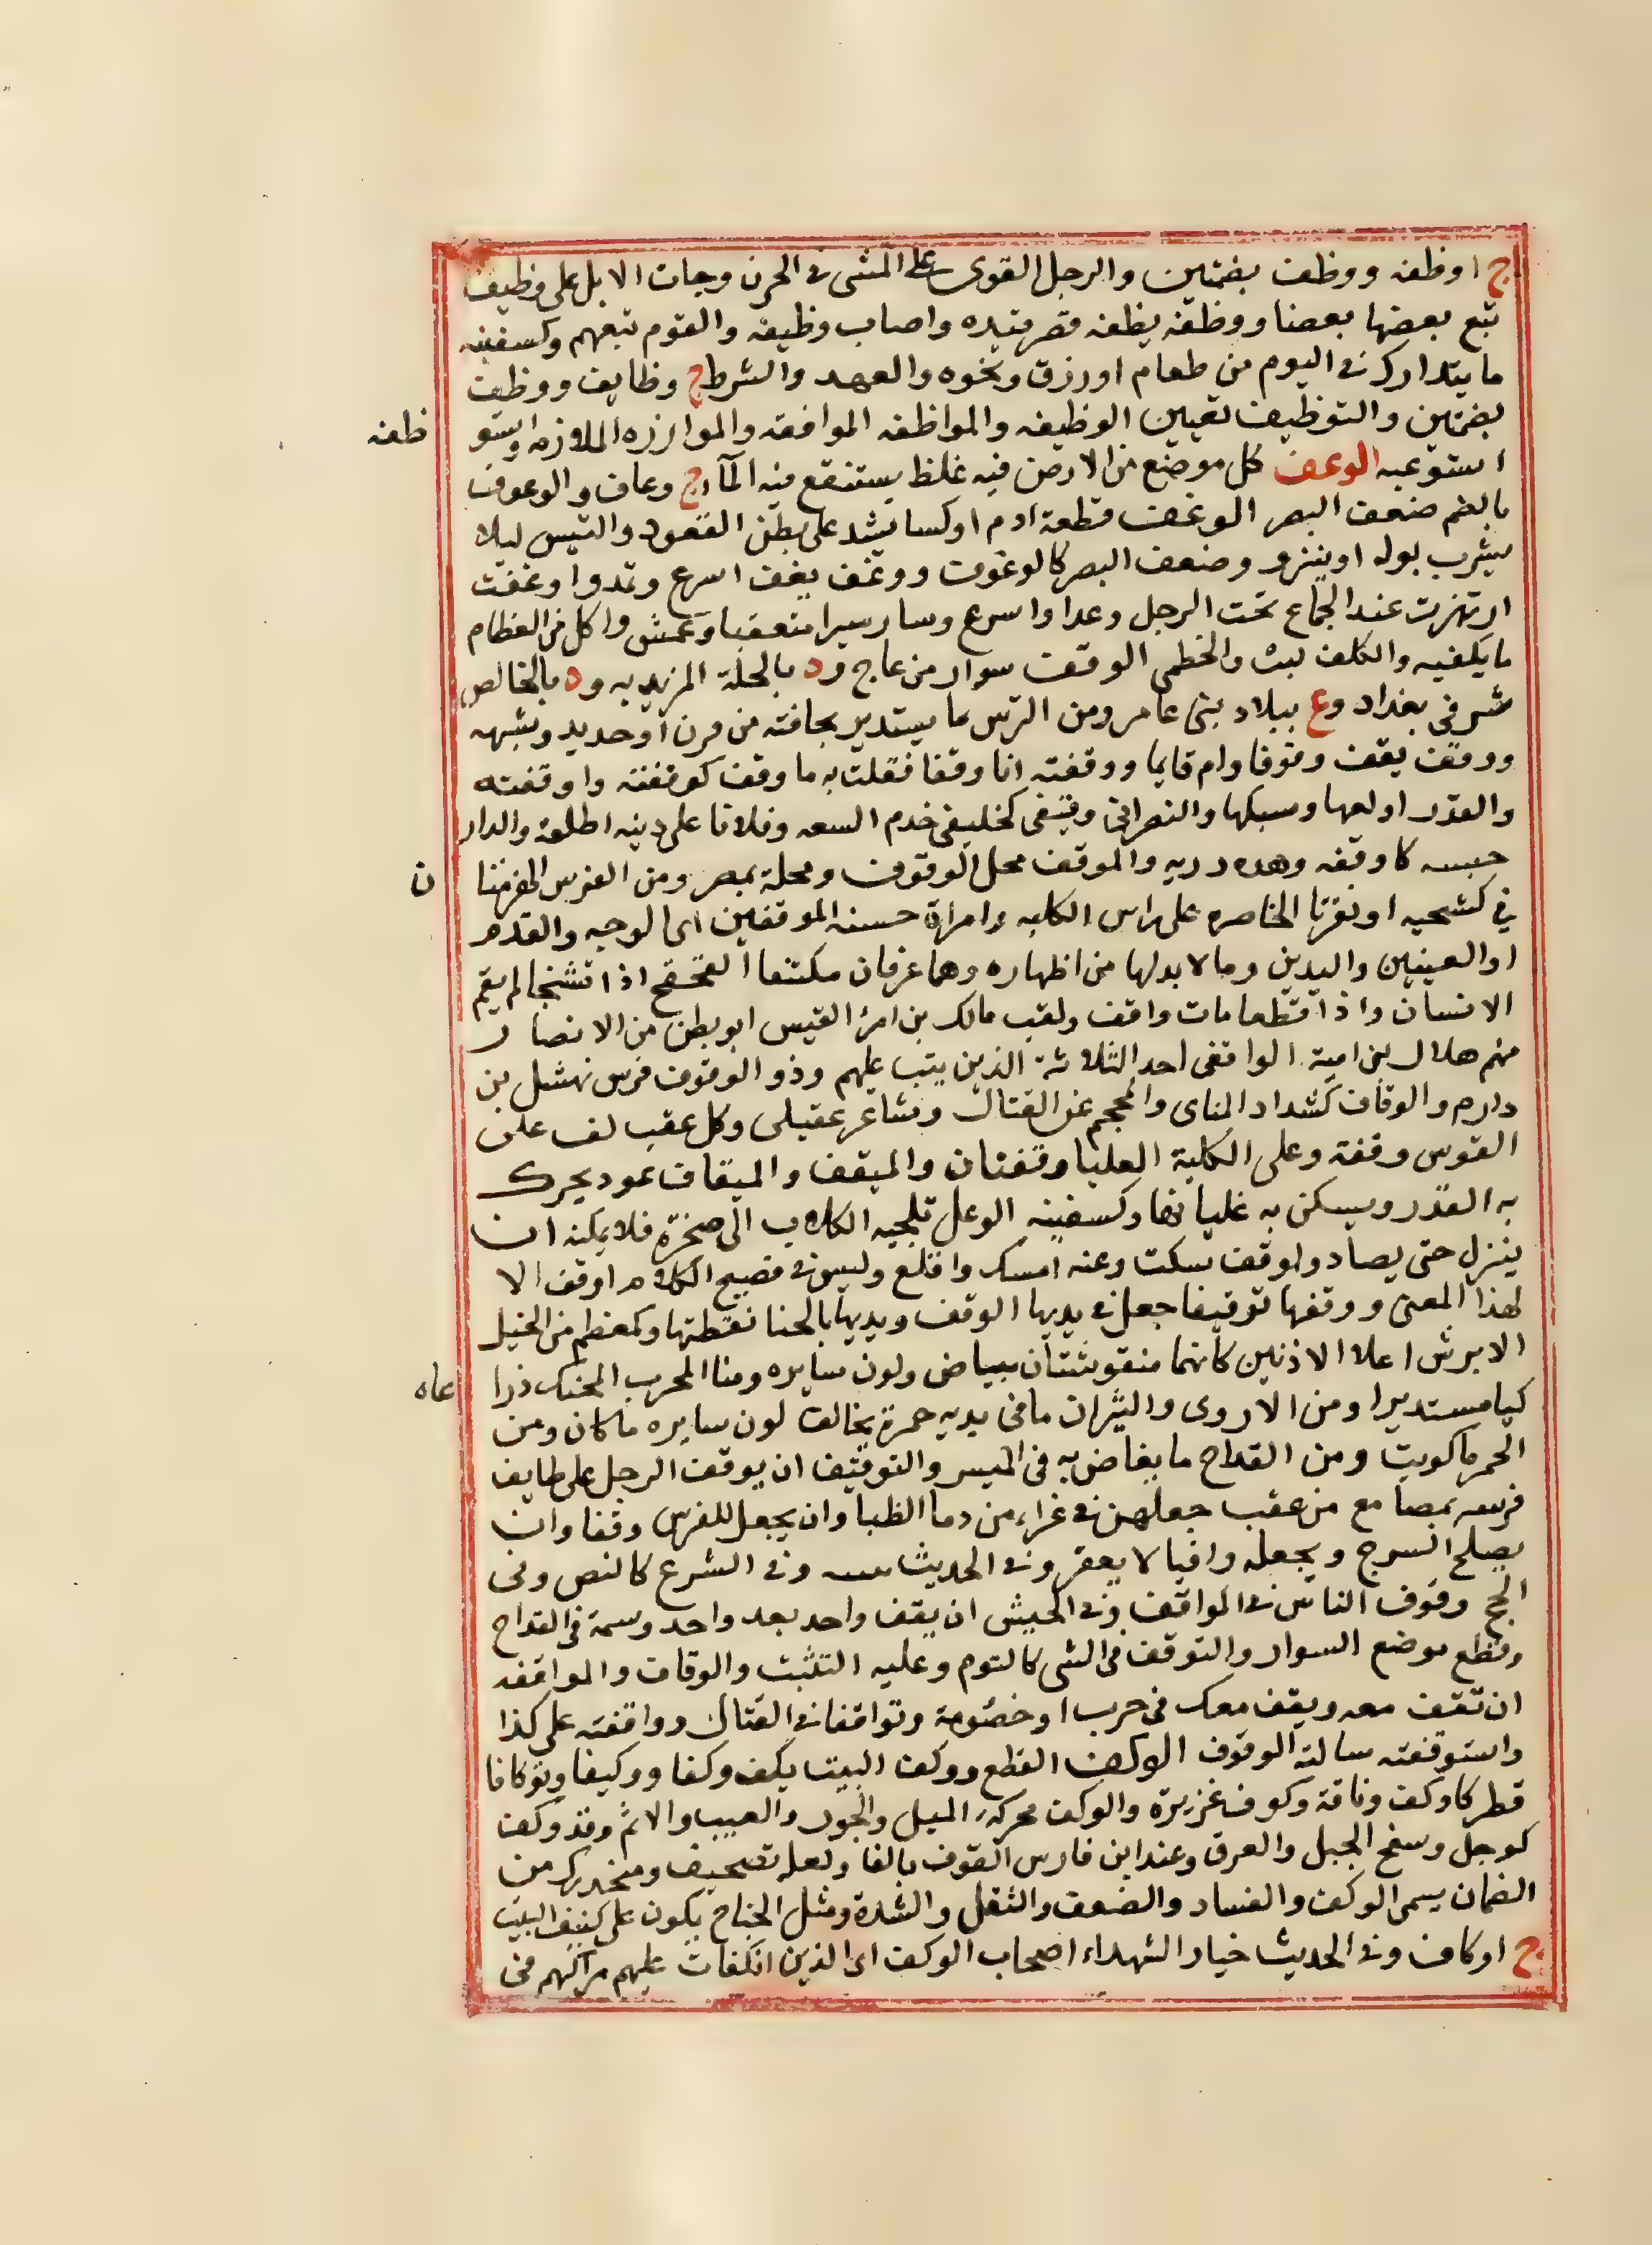 ج اوظفه ووظف بضمتين والرجل القوى على المشى فى الحزن وجات الابل على وظيف
تبع بعضها بعضا ووظفه يظفه قصر قيده واصاب وظيفه والقوم تبعهم وكسفينه
ما يتدارك فى اليوم من طعام او رزق ونحوه والعهد والشرط ج وظايف ووظف
بضمتين والتوظيف تعيين الوظيفه والمواظفه الموافقه والموارزه الملازمه واستو
ظفه
استوعبه الوعف كل موضع من الارض فيه غلظ يستنقع فيه المآ ج وعاف والوعوف
بالضم ضعف البصر الوغف قطعة ادم او كسا تشد على بطن العتود والتيس ليلا
يشرب بوله او ينزو وضعف البصر كالوغوف ووغف يغف اسرع وتمدوا وغفت
ارتهزت عند الجماع تحت الرجل وعدا واسرع وسار سيرا متعقبا وعمش واكل من الطعام
ما يكفيه والكلف لبث والخطمى الوقف سوار من عاج وه بالحلة المزيديه وه بالخالص
شرقى بغداد وع ببلاد بنى عامر ومن الترس ما يستدير بحافته من قرن او حديد وشبهه
ووقف يقف وقوفا دام قايما ووقفته انا وقفا فعلت به ما وقف كوقفته واوقفته
والقدر ادامها وسكنها والنصرانى وقيفى كخليفى خدم البيعه وفلانا على ذنبه اطلعه والدار
حبسه كاوقفه وهذه رديه والموقف محل الوقوف ومحلة بمصر ومن الفرس الهزمتا
ن
فى كشحيه او نقرتا الخاصره على راس الكليه وامراة حسنه الموقفين اى الوجه والقدم
او العينين واليدين وما لا بد لها من اظهاره وهما عرقان مكتنفا القحقح اذا تشنجا لم يقم
الانسان واذا قطعا مات وواقف ولقب مالك بن امرء القيس ابو بطن من الانصار
منهم هلال بن امية الواقفى احد الثلاثة الذين يتب عليهم وذو الوقوف فرس نهشل بن
دارم والوقاف كشداد المتانى والمحجم عن القتال وشاعر عقيلى وكل عقب لف على
القوس وقفة وعلى الكلية العليا وقفتان والميقف والميقاف عود يحرك
به القدر ويسكن به غليانها وكسفينه الوعل تلجيه الكلاب الى صخرة فلا يمكنه ان
ينزل حتى يصاد واوقف سكت وعنه امسك واقلع وليس فى فصيح الكلام اوقف الا
لهذا المعنى ووقفها توقيفا جعل فى يديها الوقف ويديها بالحنا نقطتها وكمعظم من الخيل
الابرش اعلا الاذنين كانهما منقوشتان ببياض ولون سايره ومنا المجرب المحنك ذرا
عاه
كيا مستديرا ومن الاروى والثيران ما فى يديه حمرة تخالف لون سايره ما كان ومن
الحمر ما كويت ومن القداح ما يفاض به فى الميسر والتوقيف ان يوقف الرجل على طايف
قوسه بمضايع من عقب جعلهن فى غراء من دما الظبا وان يجعل للفرس وقفا وان
يصلح السرج ويجعله واقيا لا يعقر وفى الحديث وفى الشرع كالنص وفى
الحج وقوف الناس فى المواقف وفى الجيش ان يقف واحد بعد واحد وسمة فى القداح
وقطع موضع السوار والتوقف فى الشى كالتلوم وعليه التثبت والوقاف والمواقفه
ان تقف معه ويقف معك فى حرب او خصومة وتواقفا فى القتال وواقفته على كذا
واستوقفته سالته الوقوف الوكف القطع ووكف البيت يكف وكفا ووكيفا وتوكافا
قطر كاوكف وناقة وكوف غزيرة والوكف محركة الميل والجور والعيب والاثم وقد وكف
كوجل وسفح الجبل والعرق وعند ابن فارس الفوق بالفا ولعله تصحيف ومنحدرك من
الضمان يسمى الوكف والفساد والضعف والثقل والشدة ومثل الجناح يكون على كنيف البيت
ج اوكاف وفى الحديث خيار الشهداء اصحاب الوكف اى الذين انكفات عليهم مراكبهم فى